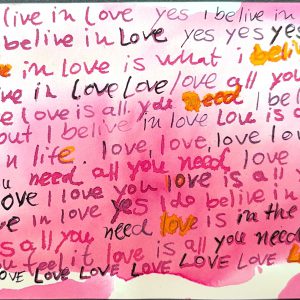 live in Love yes I belive in
belive in Love yes yes yes
in love is what i belive
in Love Love love all you
love is all you need I beli
but I belive in love Love is a
in life. love, love, love love
need all you need love
Love I love you love is all
ove in love yes I do belive in
is all you need love is in the
you feel it love is all you need
LOVE LOVE LOVE LOVE LOVE LOVE